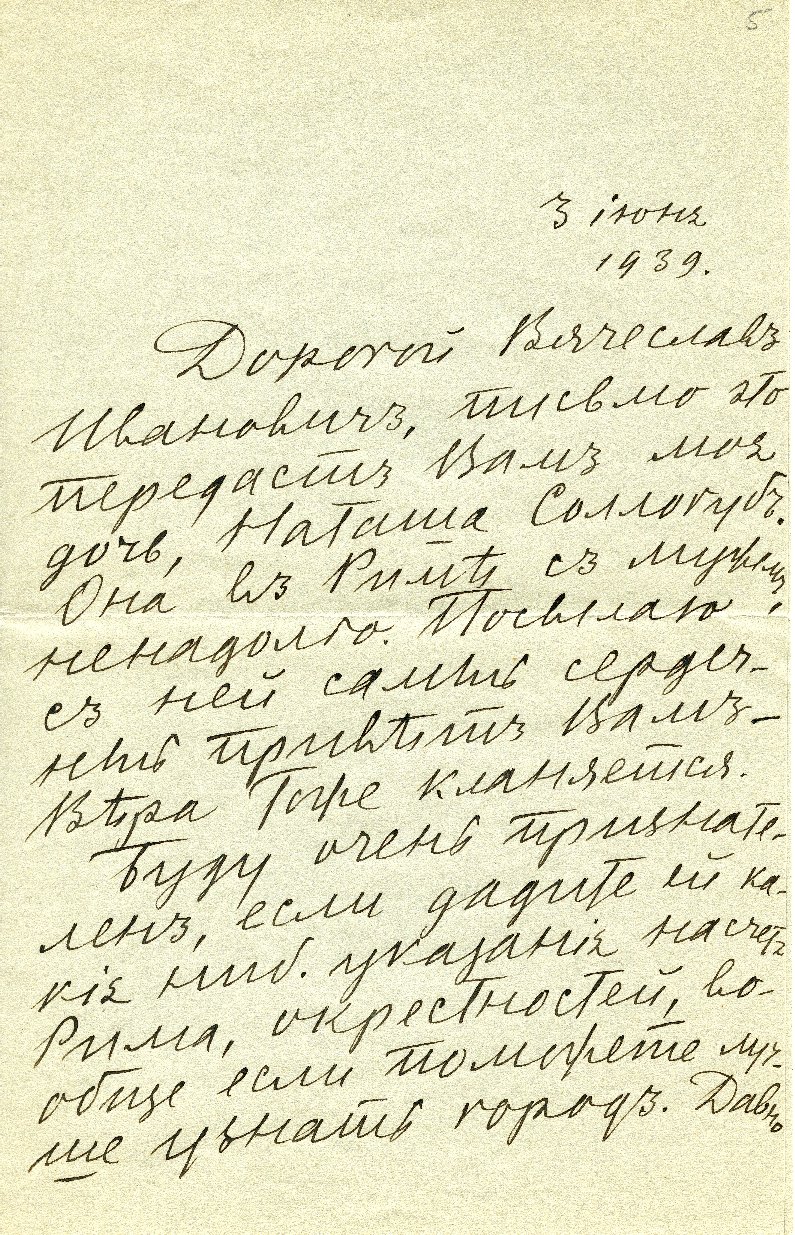 5
3 іюня
1939.
Дорогой Вячеславъ
Ивановичъ, письмо это
передастъ Вамъ моя
дочь, Наташа Соллогубъ.
Она въ Римѣ съ мужемъ,
ненадолго. Посылаю
съ ней самый сердеч-
ный привѣтъ Вамъ –
Вѣра тоже кланяется.
Буду очень признате-
ленъ, если дадите ей ка-
кія ниб. указанія насчетъ
Рима, окрестностей, во-
обще если поможете луч-
ше узнать городъ. Давно